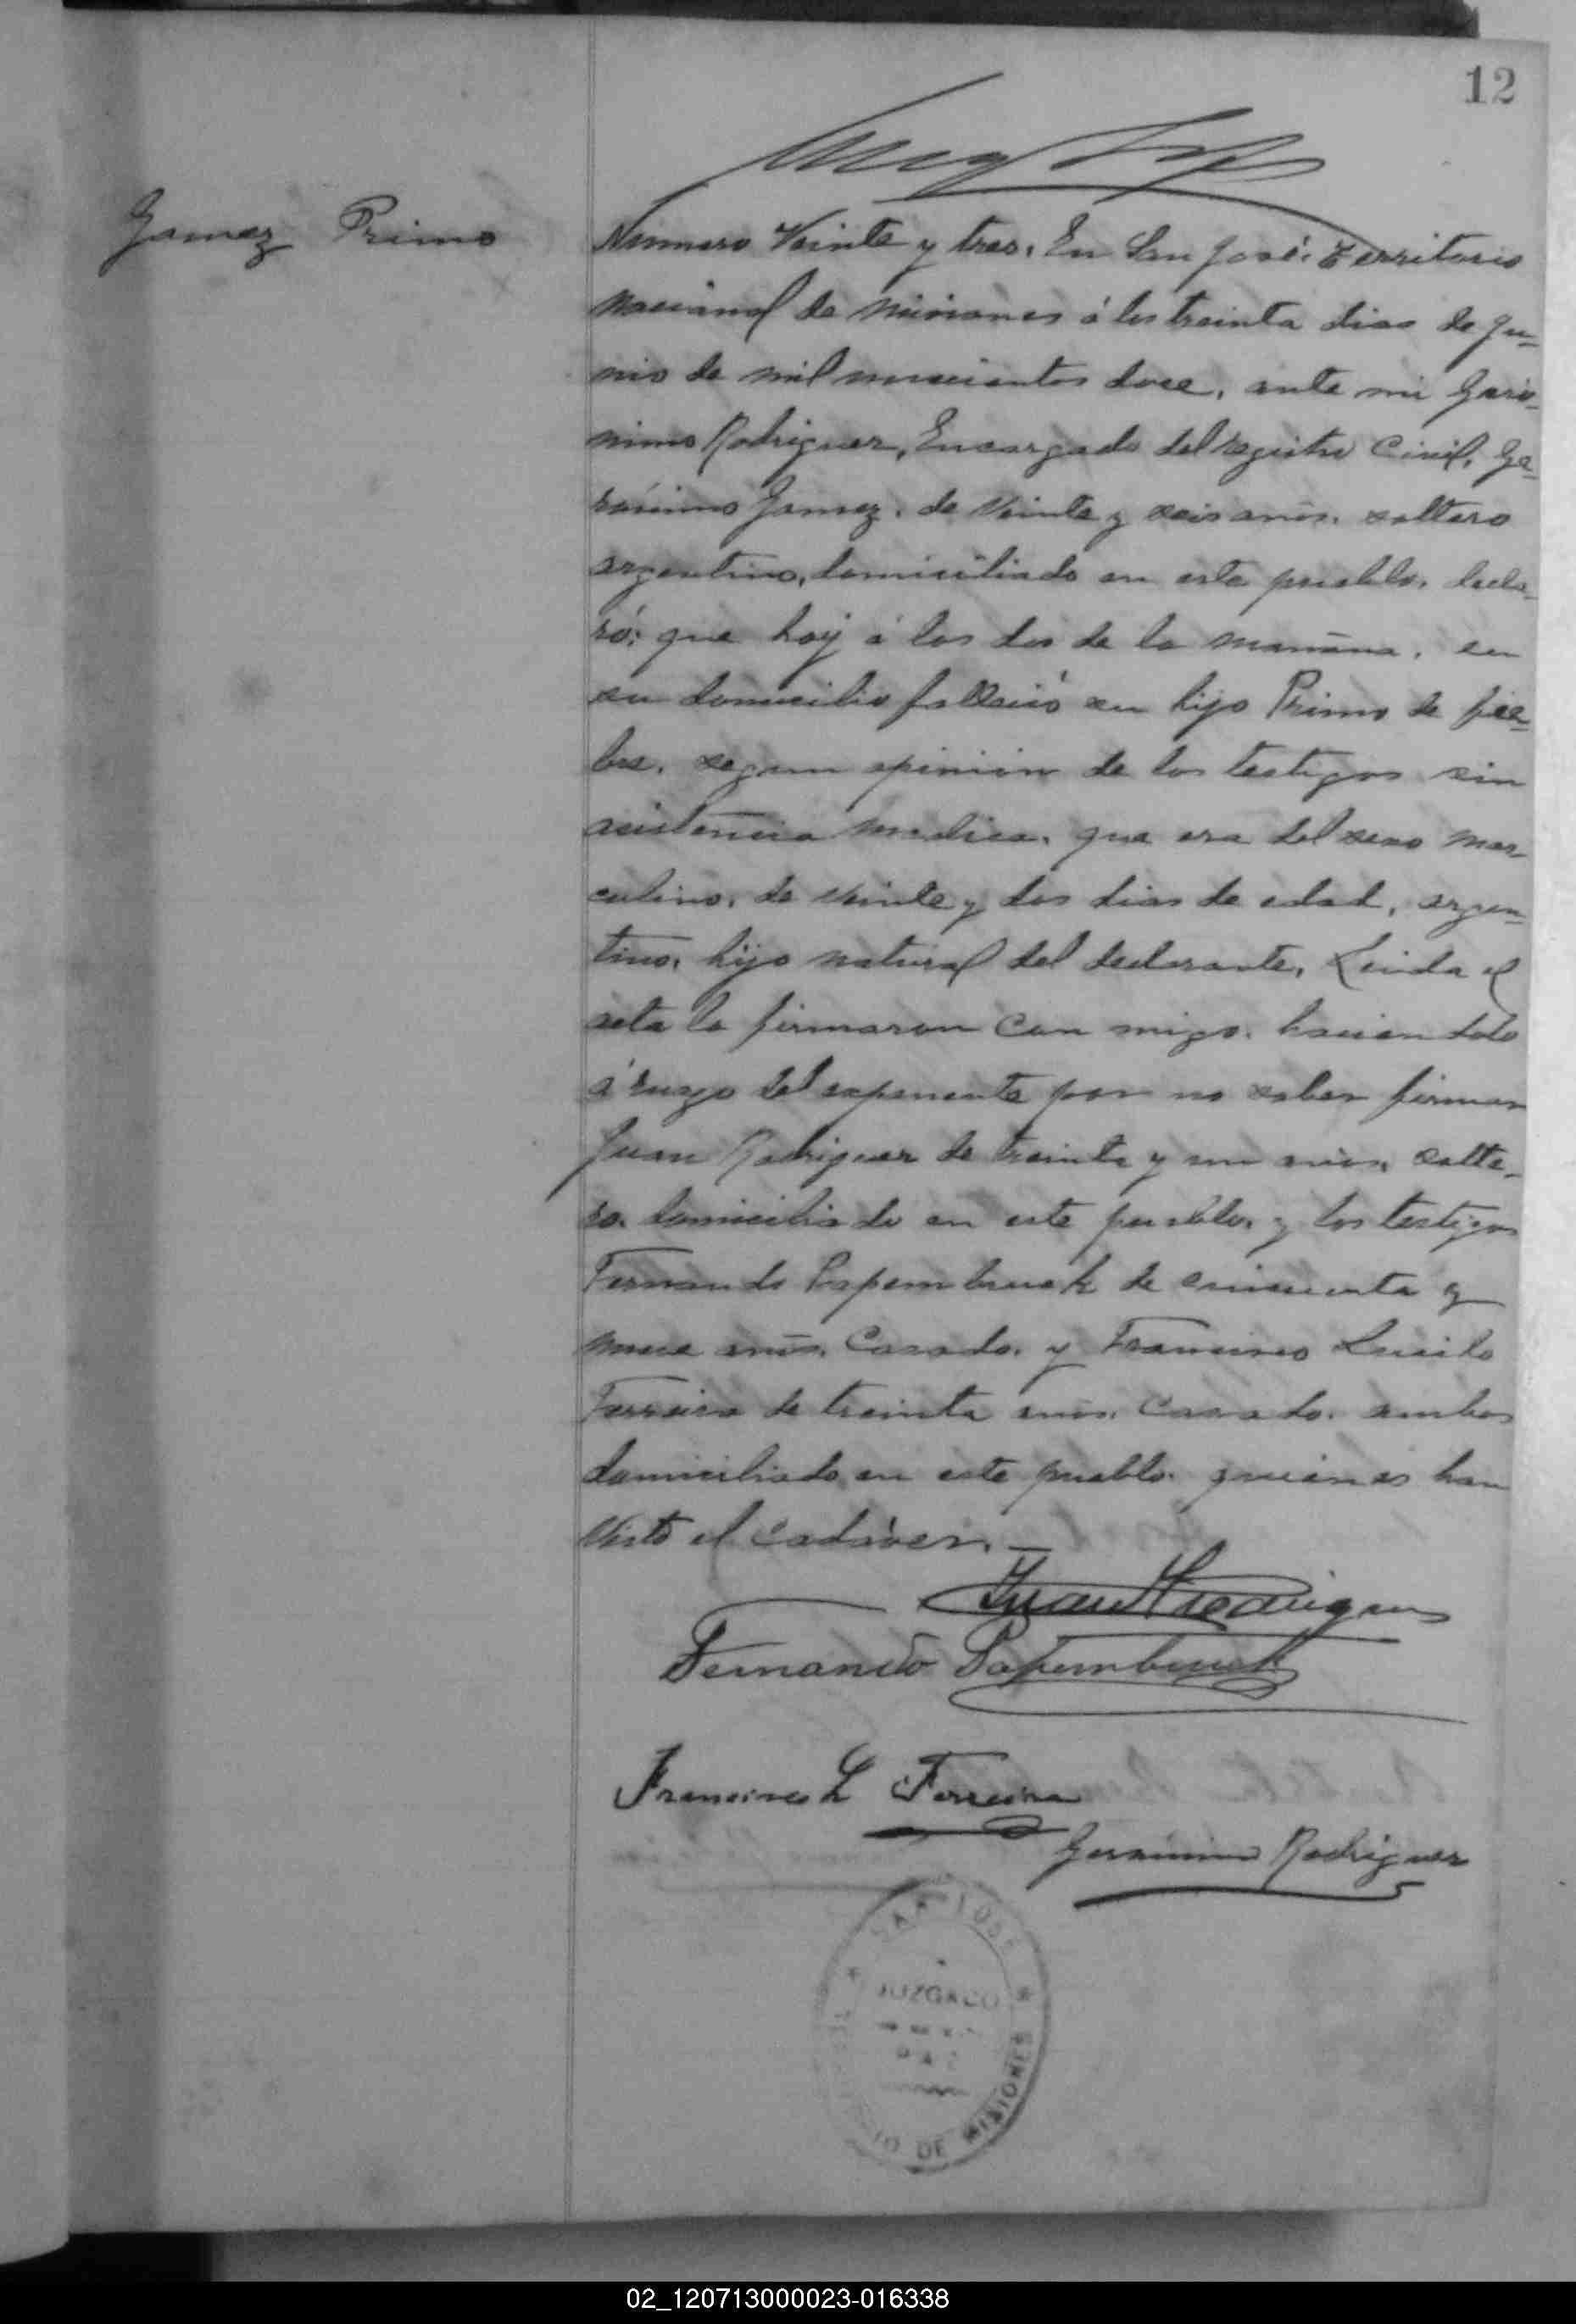 12
Gamez Primo
Número Veinte y tres. En San José. Territorio
nacional de Misiones á los treinta dias de Ju=
nio de mil novecientos doce, ante mi Geró=
nimo Rodriguez, Encargado del registro Civil, Ge=
rónimo Gamez, de veinte y seis años, soltero
argentino, domiciliado en este pueblo, decla=
ró: que hoy á las dos de la mañana, en
su domicilio falleció su hijo Primo de fie=
bre, segun opinion de los testigos sin
asistencia medica, que era del sexo mas=
culino, de veinte y dos dias de edad, argen=
tino, hijo natural del declarante, Leida el
acta la firmaron con migo, haciendolo
á ruego del exponente por no saber firmar
Juan Rodriguez de treinta y un años, solte=
ro, domiciliado en este pueblo, y los testigos
Fernando Papembruck de cincuenta y
nueve años, Casado, y Francisco Lucilo
Ferreira de treinta años, Casado, ambos
domiciliado en este pueblo, quienes han
visto el cadáver. —
Juan Rodriguez
Fernando Papembruck
Francisco L Ferreira
Gerónimo Rodriguez
SAN JOSE
JUZGADO
DE MISIONES
02_120713000023-016338